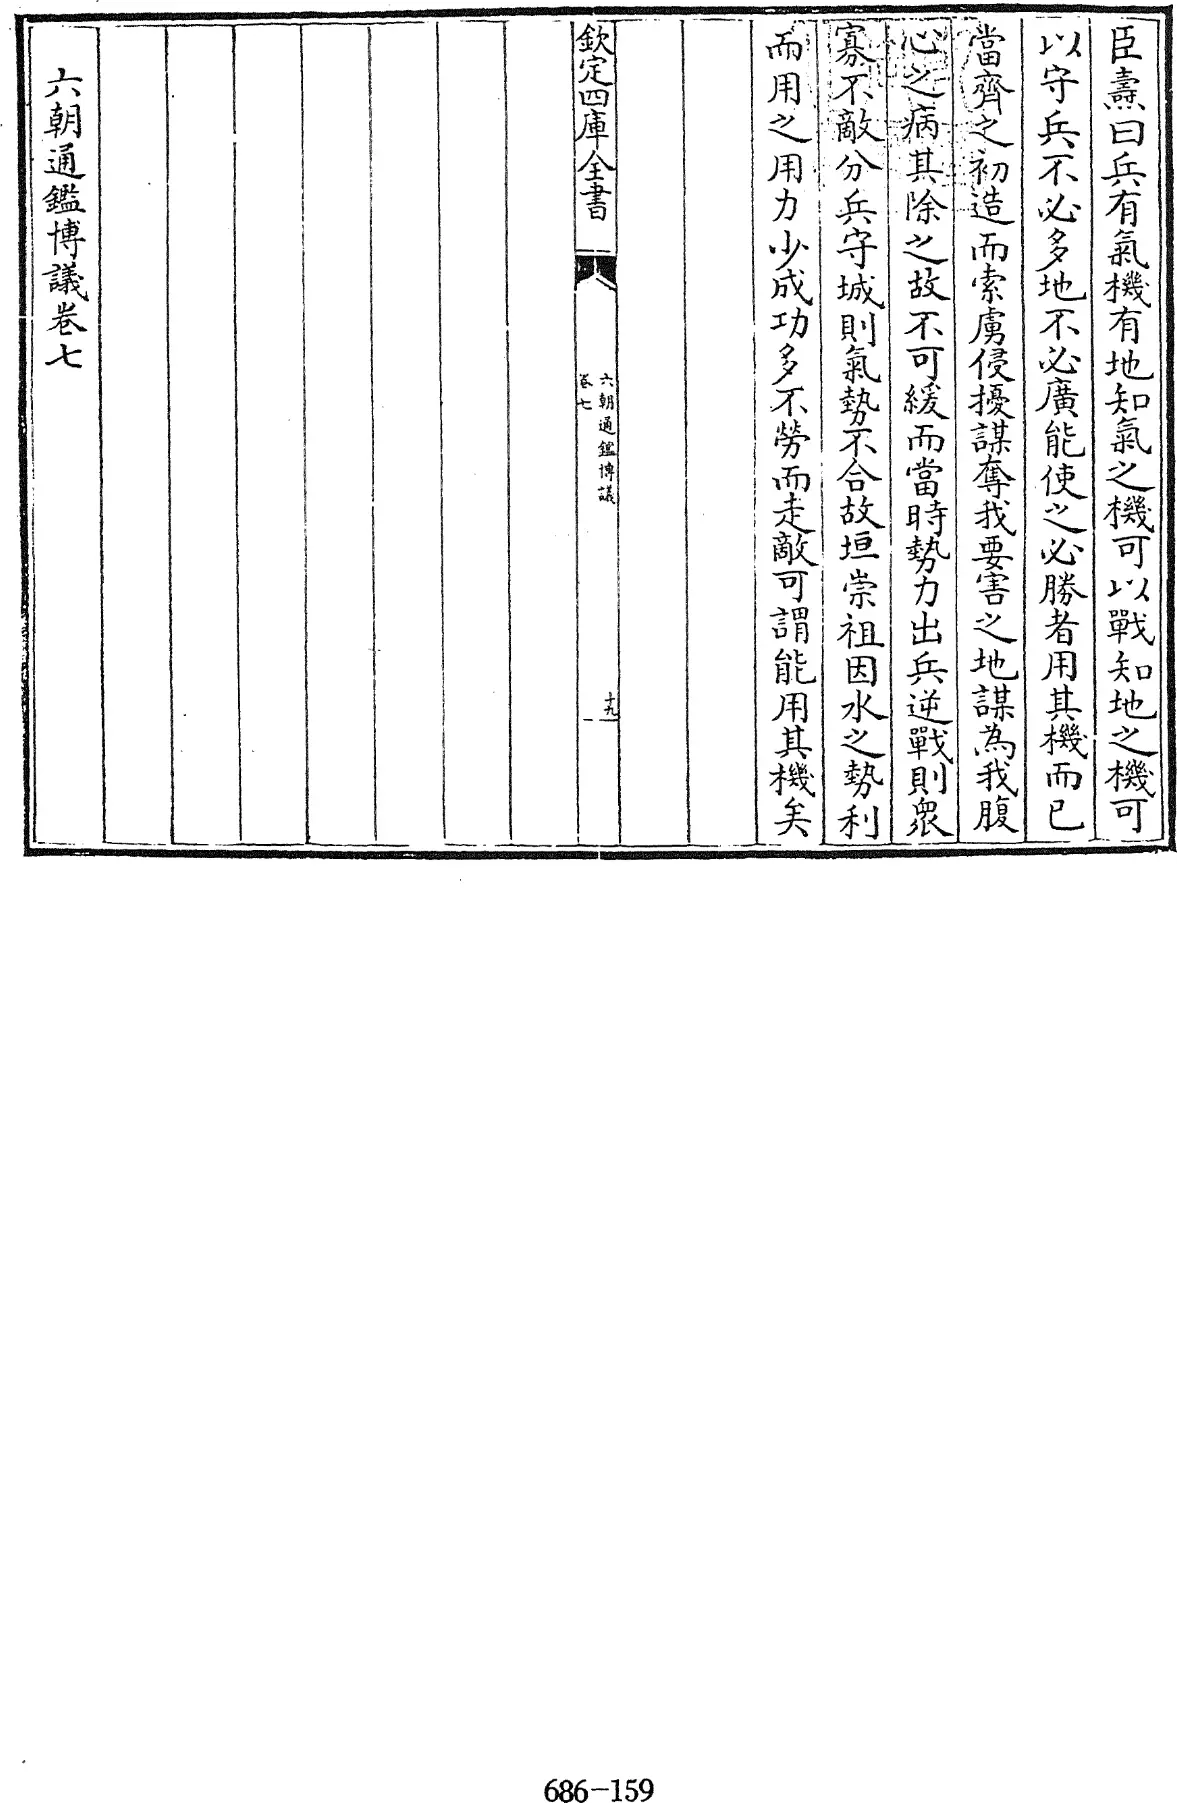 臣燾曰兵有氣機有地知氣之機可以戰知地之機可
以守兵不必多地不必廣能使之必勝者用其機而已
當齊之初造而索虜侵擾謀奪我要害之地謀為我腹
心之病其除之故不可緩而當時勢力出兵逆戰則衆
寡不敵分兵守城則氣勢不合故垣崇祖因水之勢利
而用之用力少成功多不勞而走敵可謂能用其機矣
欽定四庫全書
六朝通鑑博議
卷七
十九
六朝通鑑博議卷七
686-159